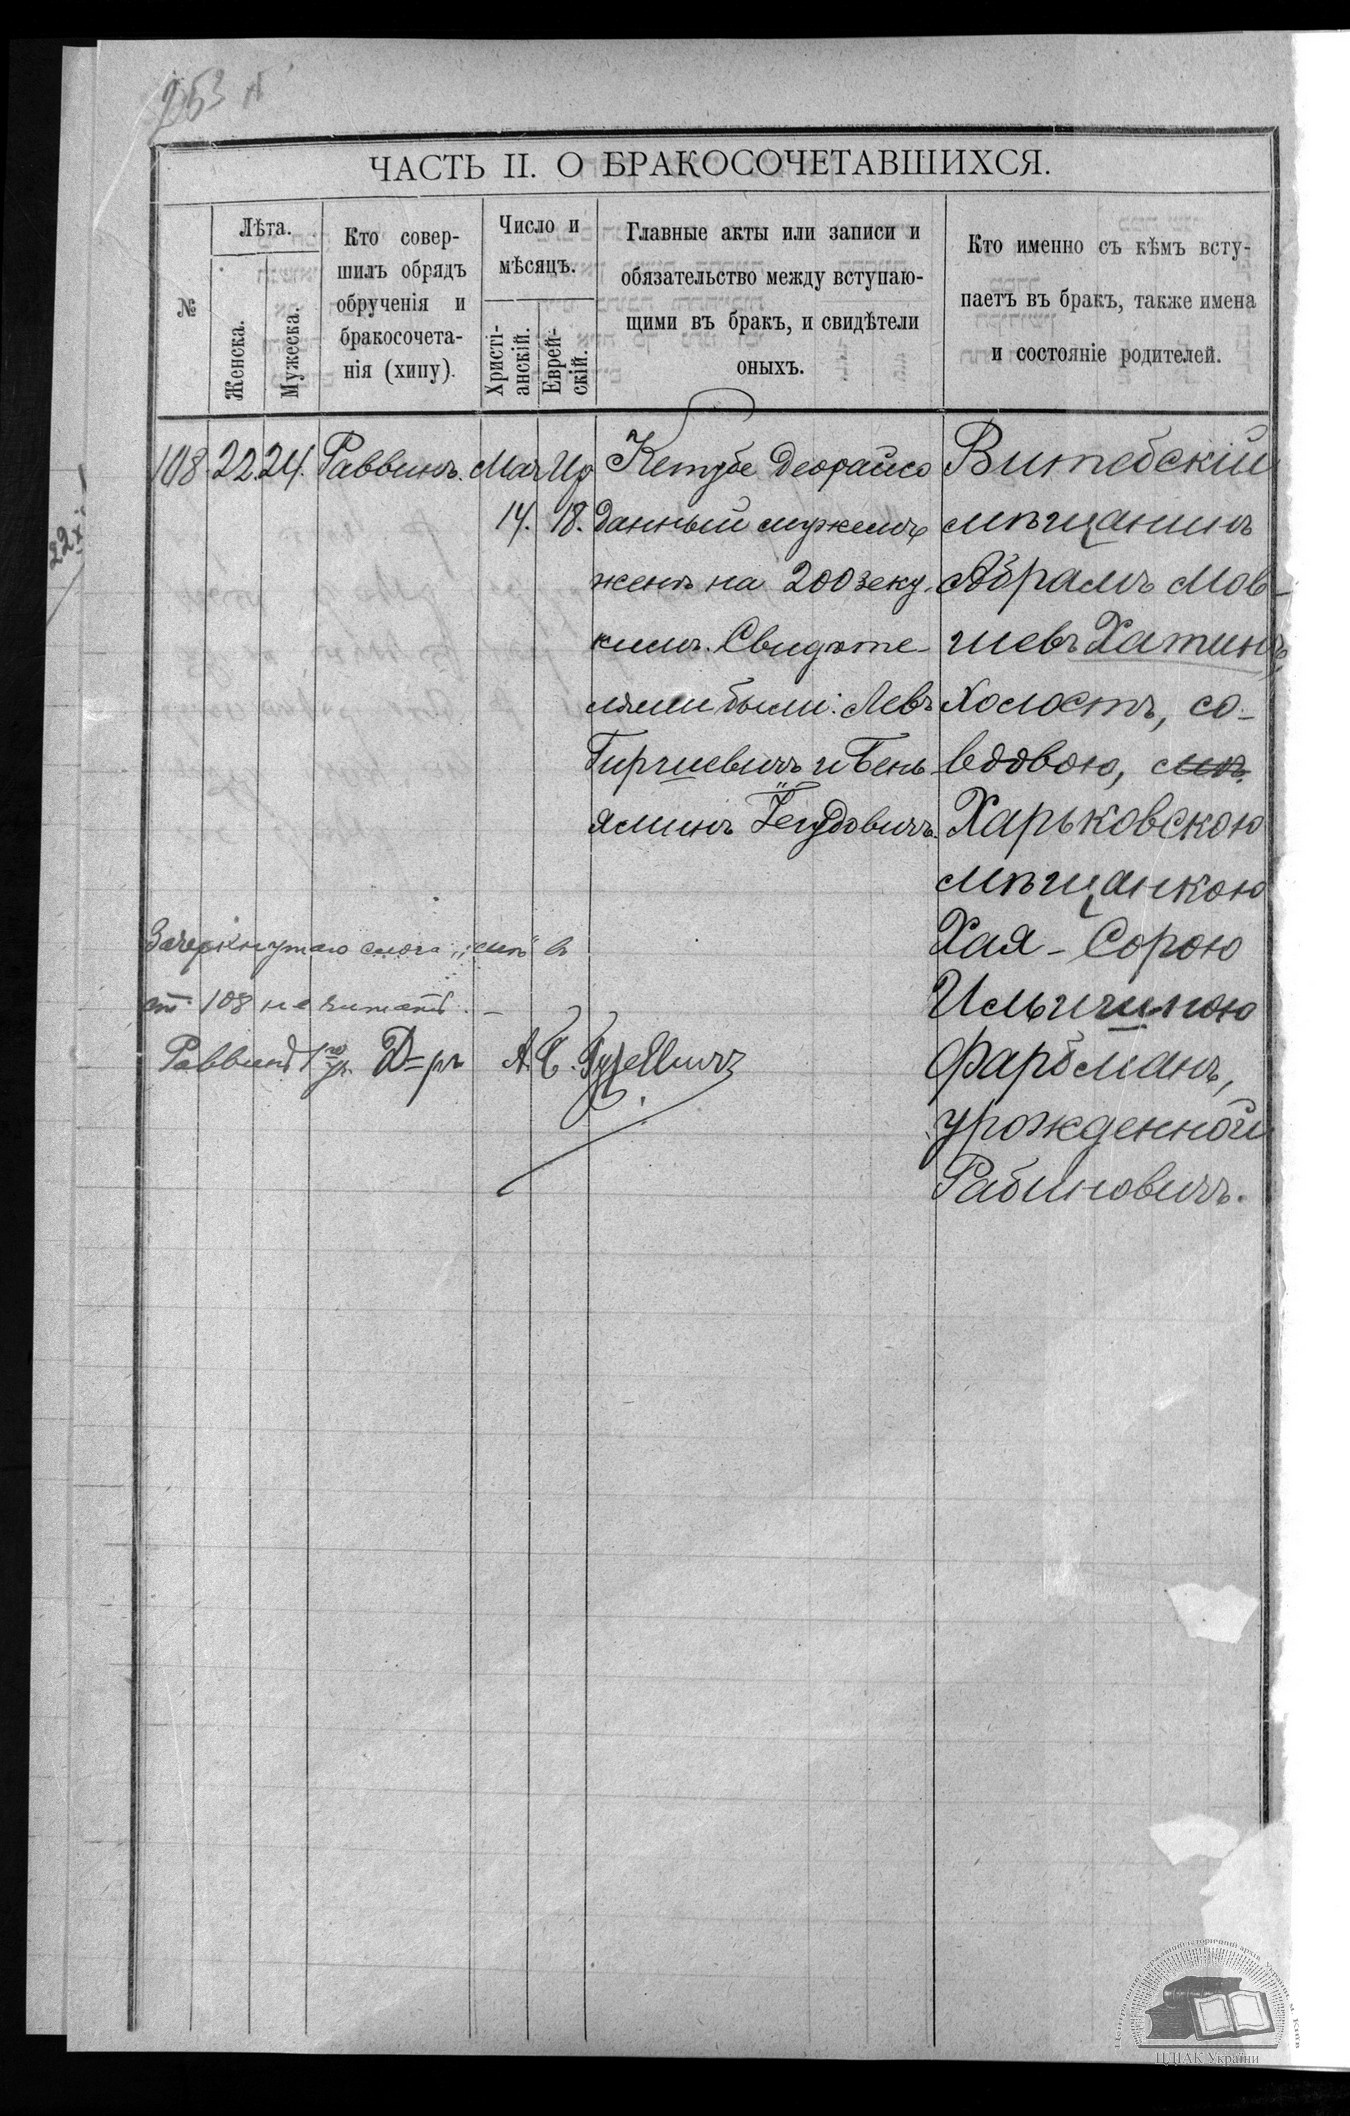 253
ЧАСТЬ II. О БРАКОСОЧЕТАВШИХСЯ.
№
Лѣта.
Женска.
Мужеска.
Кто совер-
шилъ обрядъ
обрученія и
бракосочета-
нія (хипу).
Число и
мѣсяцъ.
Христі-
анскій.
Еврей-
скій.
Главные акты или записи и
обязательство между вступаю-
щими въ бракъ, и свидѣтели
оныхъ.
Кто именно съ кѣмъ всту-
паетъ въ бракъ, также имена
и состояніе родителей.
108. 22. 24. Раввинъ. Мая 14. Ир 18.
Кетубе Деорайсо
данный мужемъ
женѣ на 200 зеку-
кимъ. Свидѣте-
лями были: Левъ
Гиршевичъ и Бень-
яминъ Іегудовичъ.
Витебскій
мѣщанинъ
Абрамъ Мов-
шевъ Хатинъ,
холостъ, со
вдовою, смѣ
Харьковскою
мѣщанкою
Хая-Сорою
Ильичиною
Фарбманъ,
урожденной
Рабиновичъ.
Зачеркнутаго слога „смѣ" въ
ст. 108 не читать. –
Раввинъ Д-ръ
22
ЦДІАК України